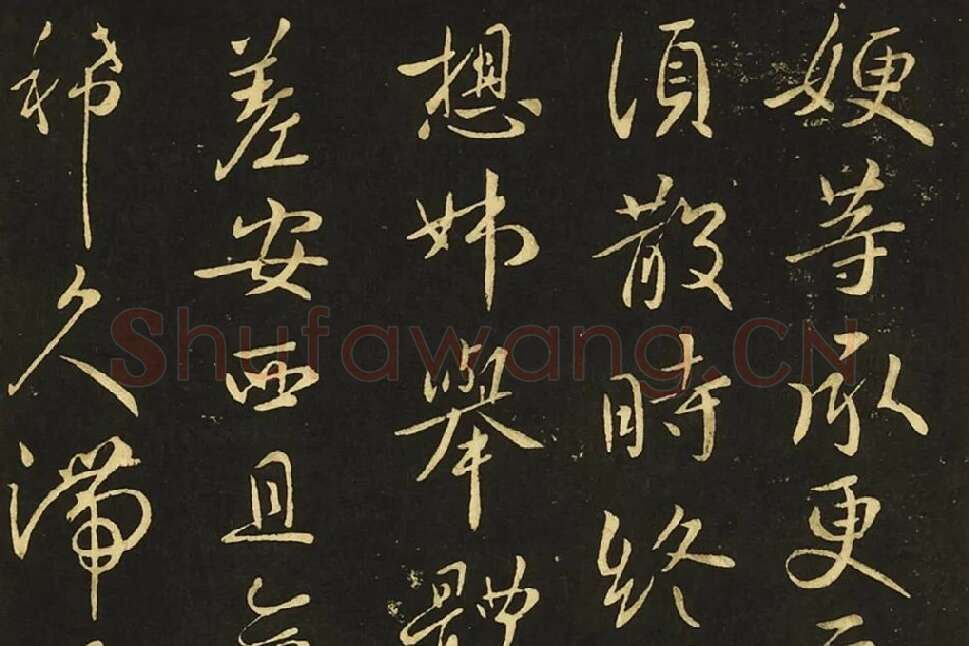 嫂等承更
須散時終
想姊舉體
差安西且
稀久滯
Shufawang.CN